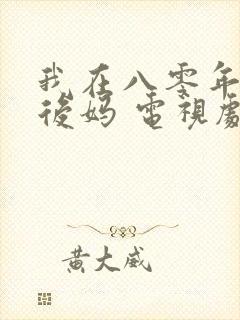 我在八零年
後妈 電視劇
黄大威